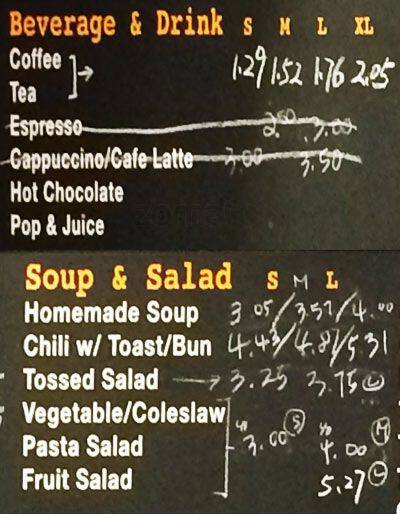 Beverage & Drink S M L XL
Coffee 1.29 1.52 1.76 2.05
Tea
Espresso 2.50 3.00
Cappuccino/Cafe Latte 3.00 3.50
Hot Chocolate
Pop & Juice
Soup & Salad S M L
Homemade Soup 3.05/3.57/4.00
Chili w/ Toast/Bun 4.43/4.87/5.31
Tossed Salad → 3.25 3.75 L
Vegetable/Coleslaw
Pasta Salad 3.00 S 4.00 M
Fruit Salad 5.27 L